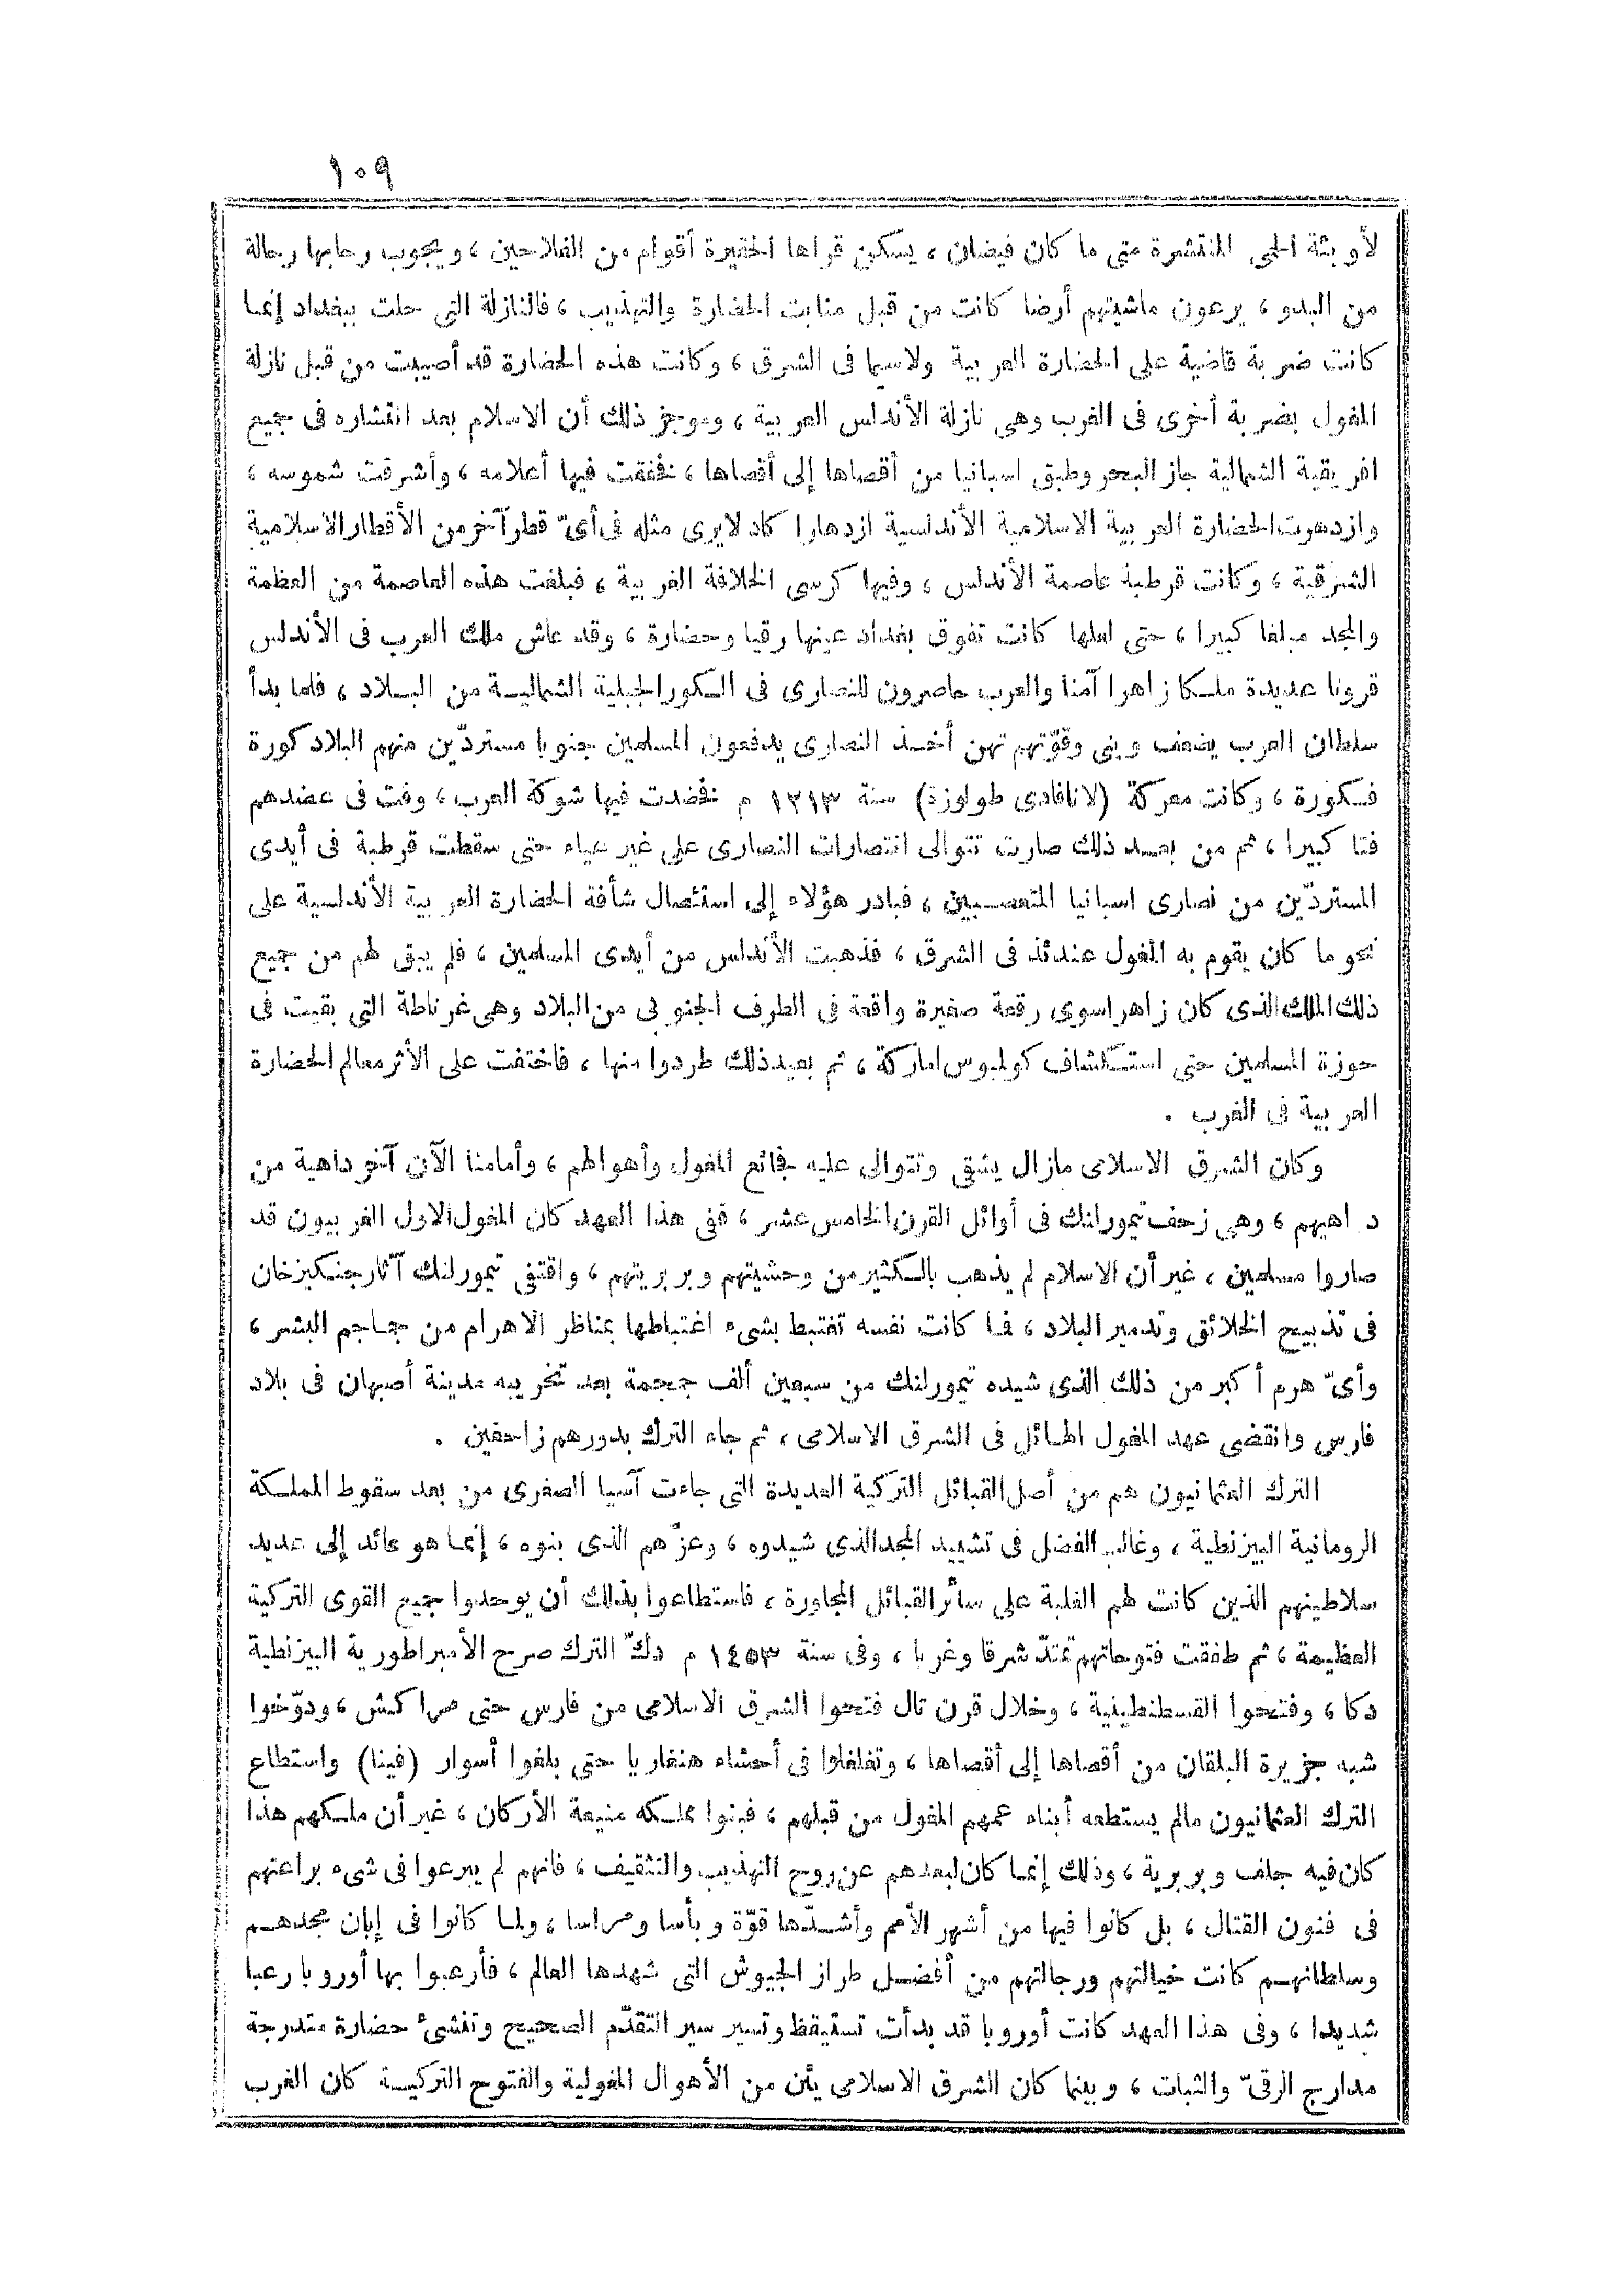 ١٠٩
لأوبئة الحمى المنتشرة متى ما كان فيضان ، يسكن قراها الحقيرة أقوام من الفلاحين ، ويجوب رحابها رحالة
من البدو ، يرعون ماشيتهم أرضا كانت من قبل منابت الحضارة والتهذيب ، فالنازلة التى حلت ببغداد إنما
كانت ضربة قاضية على الحضارة العربية ولاسيما فى الشرق ، وكانت هذه الحضارة قد أصيبت من قبل نازلة
المغول بضربة أخرى فى الغرب وهى نازلة الأندلس العربية ، وموجز ذلك أن الاسلام بعد انتشاره فى جميع
افريقية الشمالية جاز البحر وطبق اسبانيا من أقصاها إلى أقصاها ، نفقت فيها أعلامه ، وأشرقت شموسه ،
وازدهرت الحضارة العربية الاسلامية الأندلسية ازدهارا كاد لايرى مثله فى أىّ قطر آخر من الأقطار الاسلامية
الشرقية ، وكانت قرطبة عاصمة الأندلس ، وفيها كرسى الخلافة الغربية ، فبلغت هذه العاصمة من العظمة
والمجد مبلغا كبيرا ، حتى لعلها كانت تفوق بغداد عينها رقيا وحضارة ، وقد عاش ملك العرب فى الأندلس
قرونا عديدة ملكا زاهرا آمنا والعرب حاصرون للنصارى فى الكور الجبلية الشمالية من البلاد ، فلما بدأ
سلطان العرب يضعف وينى وقوّتهم تهن أخذ النصارى يدفعون المسلمين جنوبا مستردّين منهم البلاد كورة
فكورة ، وكانت معركة (لاناڤادى طولوزة) سنة ١٢١٣ م نفضدت فيها شوكة العرب ، وفت فى عضدهم
فتا كبيرا ، ثم من بعد ذلك صارت تتوالى انتصارات النصارى على غير عياء حتى سقطت قرطبة فى أيدى
المستردّين من نصارى اسبانيا المتعصبين ، فبادر هؤلاء إلى استئصال شأفة الحضارة العربية الأندلسية على
نحو ما كان يقوم به المغول عندئذ فى الشرق ، فذهبت الأندلس من أيدى المسلمين ، فلم يبق لهم من جميع
ذلك الملك الذى كان زاهرا سوى رقعة صغيرة واقعة فى الطرف الجنوبى من البلاد وهى غرناطة التى بقيت فى
حوزة المسلمين حتى استكشاف كولمبوس اماركة ، ثم بعيد ذلك طردوا منها ، فاختفت على الأثر معالم الحضارة
العربية فى الغرب .
وكان الشرق الاسلامى مازال يشقى وتتوالى عليه فجائع المغول وأهوالهم ، وأمامنا الآن آخر داهية من
دواهيهم ، وهى زحف تيمورلنك فى أوائل القرن الخامس عشر ، ففى هذا العهد كان المغول الاول الغربيون قد
صاروا مسلمين ، غير أن الاسلام لم يذهب بالكثير من وحشيتهم وبربريتهم ، واقتفى تيمورلنك آثار جنكيزخان
فى تذبيح الخلائق وتدمير البلاد ، فما كانت نفسه تغتبط بشىء اغتباطها بمناظر الاهرام من جماجم البشر ،
وأىّ هرم أكبر من ذلك الذى شيده تيمورلنك من سبعين ألف جمجمة بعد تخريبه مدينة أصبهان فى بلاد
فارس وانقضى عهد المغول الهائل فى الشرق الاسلامى ، ثم جاء الترك بدورهم زاحفين .
الترك العثمانيون هم من أصل القبائل التركية العديدة التى جاءت آسيا الصغرى من بعد سقوط المملكة
الرومانية البيزنطية ، وغالب الفضل فى تشييد المجد الذى شيدوه ، وعزّهم الذى بنوه ، إنما هو عائد إلى عديد
سلاطينهم الذين كانت لهم الغلبة على سائر القبائل المجاورة ، فاستطاعوا بذلك أن يوحدوا جميع القوى التركية
العظيمة ، ثم طفقت فتوحاتهم تمتدّ شرقا وغربا ، وفى سنة ١٤٥٣ م دكّ الترك صرح الأمبراطورية البيزنطية
دكا ، وفتحوا القسطنطينية ، وخلال قرن تال فتحوا الشرق الاسلامى من فارس حتى مراكش ، ودوّخوا
شبه جزيرة البلقان من أقصاها إلى أقصاها ، وتغلغلوا فى أحشاء هنغاريا حتى بلغوا أسوار (فينا) واستطاع
الترك العثمانيون مالم يستطعه أبناء عمهم المغول من قبلهم ، فبنوا مملكه منيعة الأركان ، غير أن ملكهم هذا
كان فيه جلف وبربرية ، وذلك إنما كان لبعدهم عن روح التهذيب والتثقيف ، فانهم لم يبرعوا فى شىء براعتهم
فى فنون القتال ، بل كانوا فيها من أشهر الأمم وأشدّها قوّة وبأسا ومراسا ، ولما كانوا فى إبان مجدهم
وسلطانهم كانت خيالتهم ورجالتهم من أفضل طراز الجيوش التى شهدها العالم ، فأرعبوا بها أوروبا رعبا
شديدا ، وفى هذا العهد كانت أوروبا قد بدأت تستيقظ وتسير سير التقدّم الصحيح وتنشئ حضارة متدرجة
مدارج الرقىّ والثبات ، وبينما كان الشرق الاسلامى يئن من الأهوال المغولية والفتوح التركية كان الغرب